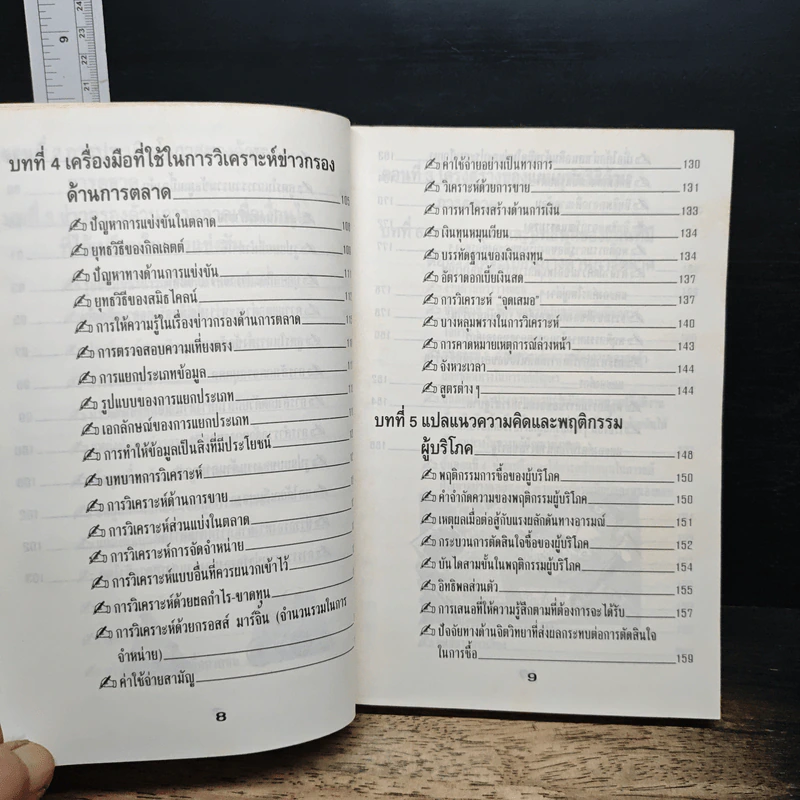 บทที่ 4 เครื่องมือที่ใช้ในการวิเคราะห์ข่าวกรอง
ด้านการตลาด 105
ปัญหาการแข่งขันในตลาด
ยุทธวิธีของกิลเลตต์
ปัญหาทางด้านการแข่งขัน
ยุทธวิธีของสมิธไคลน์
การให้ความรู้ในเรื่องข่าวกรองด้านการตลาด
การตรวจสอบความเที่ยงตรง
การแยกประเภทข้อมูล
รูปแบบของการแยกประเภท
เอกลักษณ์ของการแยกประเภท
การทำให้ข้อมูลเป็นสิ่งที่มีประโยชน์
บทบาทการวิเคราะห์
การวิเคราะห์ด้านการขาย
การวิเคราะห์ส่วนแบ่งในตลาด
การวิเคราะห์การจัดจำหน่าย
การวิเคราะห์แบบอื่นที่ควรผนวกเข้าไว้
การวิเคราะห์ด้วยผลกำไร-ขาดทุน
การวิเคราะห์ด้วยกรอสส์ มาร์จิ้น (จำนวนรวมในการ
จำหน่าย)
ค่าใช้จ่ายสามัญ
8
ค่าใช้จ่ายอย่างเป็นทางการ 130
วิเคราะห์ด้วยการขาย 131
การหาโครงสร้างด้านการเงิน 133
เงินทุนหมุนเวียน 134
บรรทัดฐานของเงินลงทุน 134
อัตราดอกเบี้ยเงินสด 137
การวิเคราะห์ "จุดเสมอ" 137
บางหลุมพรางในการวิเคราะห์ 140
การคาดหมายเหตุการณ์ล่วงหน้า 143
จังหวะเวลา 144
สูตรต่างๆ 144
บทที่ 5 แปลแนวความคิดและพฤติกรรม
ผู้บริโภค 148
พฤติกรรมการซื้อของผู้บริโภค 150
คำจำกัดความของพฤติกรรมผู้บริโภค 150
เหตุผลเมื่อต่อสู้กับแรงผลักดันทางอารมณ์ 151
กระบวนการตัดสินใจซื้อของผู้บริโภค 152
บันไดสามขั้นในพฤติกรรมผู้บริโภค 154
อิทธิพลส่วนตัว 155
การเสนอที่ให้ความรู้สึกตามที่ต้องการจะได้รับ 157
ปัจจัยทางด้านจิตวิทยาที่ส่งผลกระทบต่อการตัดสินใจ
ในการซื้อ 159
9